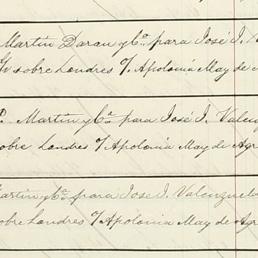 Martin Daran y Ca. para José J. V
s/ sobre Londres 7/ Apolonia May de A
P. Martin y Ca. para José J. Valenz
sobre Londres 7/ Apolonia May de Agr
Martin y Ca. para José J. Valenzuela
sobre Londres 7/ Apolonia May de Agr